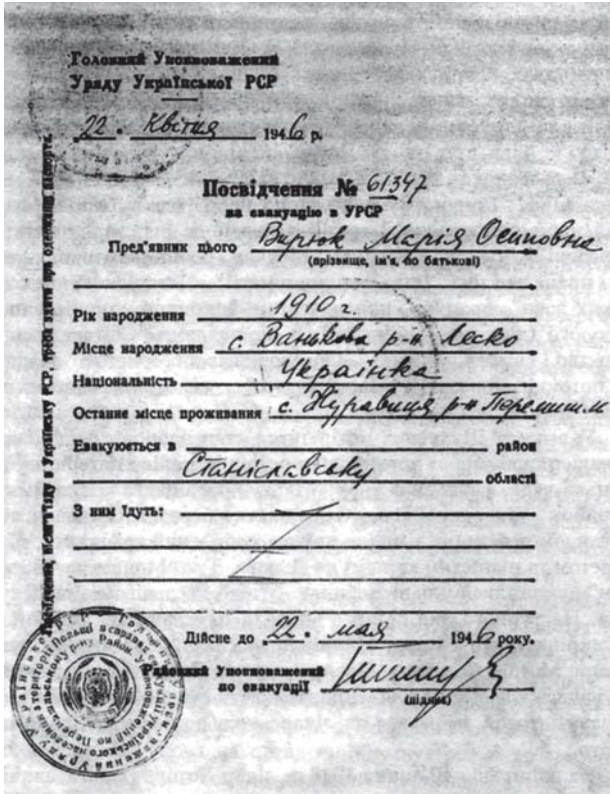 Головний Уповноважений
Уряду Української РСР
22. Квітня 1946 р.
Посвідчення № 61347
на евакуацію в УРСР
Пред'явник цього Вирюк Марія Осиповна
(прізвище, ім'я, по батькові)
Рік народження 1910 г.
Місце народження с. Ванькова р-н Леско
Національність Українка
Останнє місце проживання с. Журавиця р-н Перемишль
Евакуюється в район
Станіславську області
З ним їдуть:
Дійсне до 22. мая 1946 року.
Районний Уповноважений
по евакуації
(підпис)
Посвідчення, після в'їзду в Українську РСР, треба здати при одержанні паспорта.